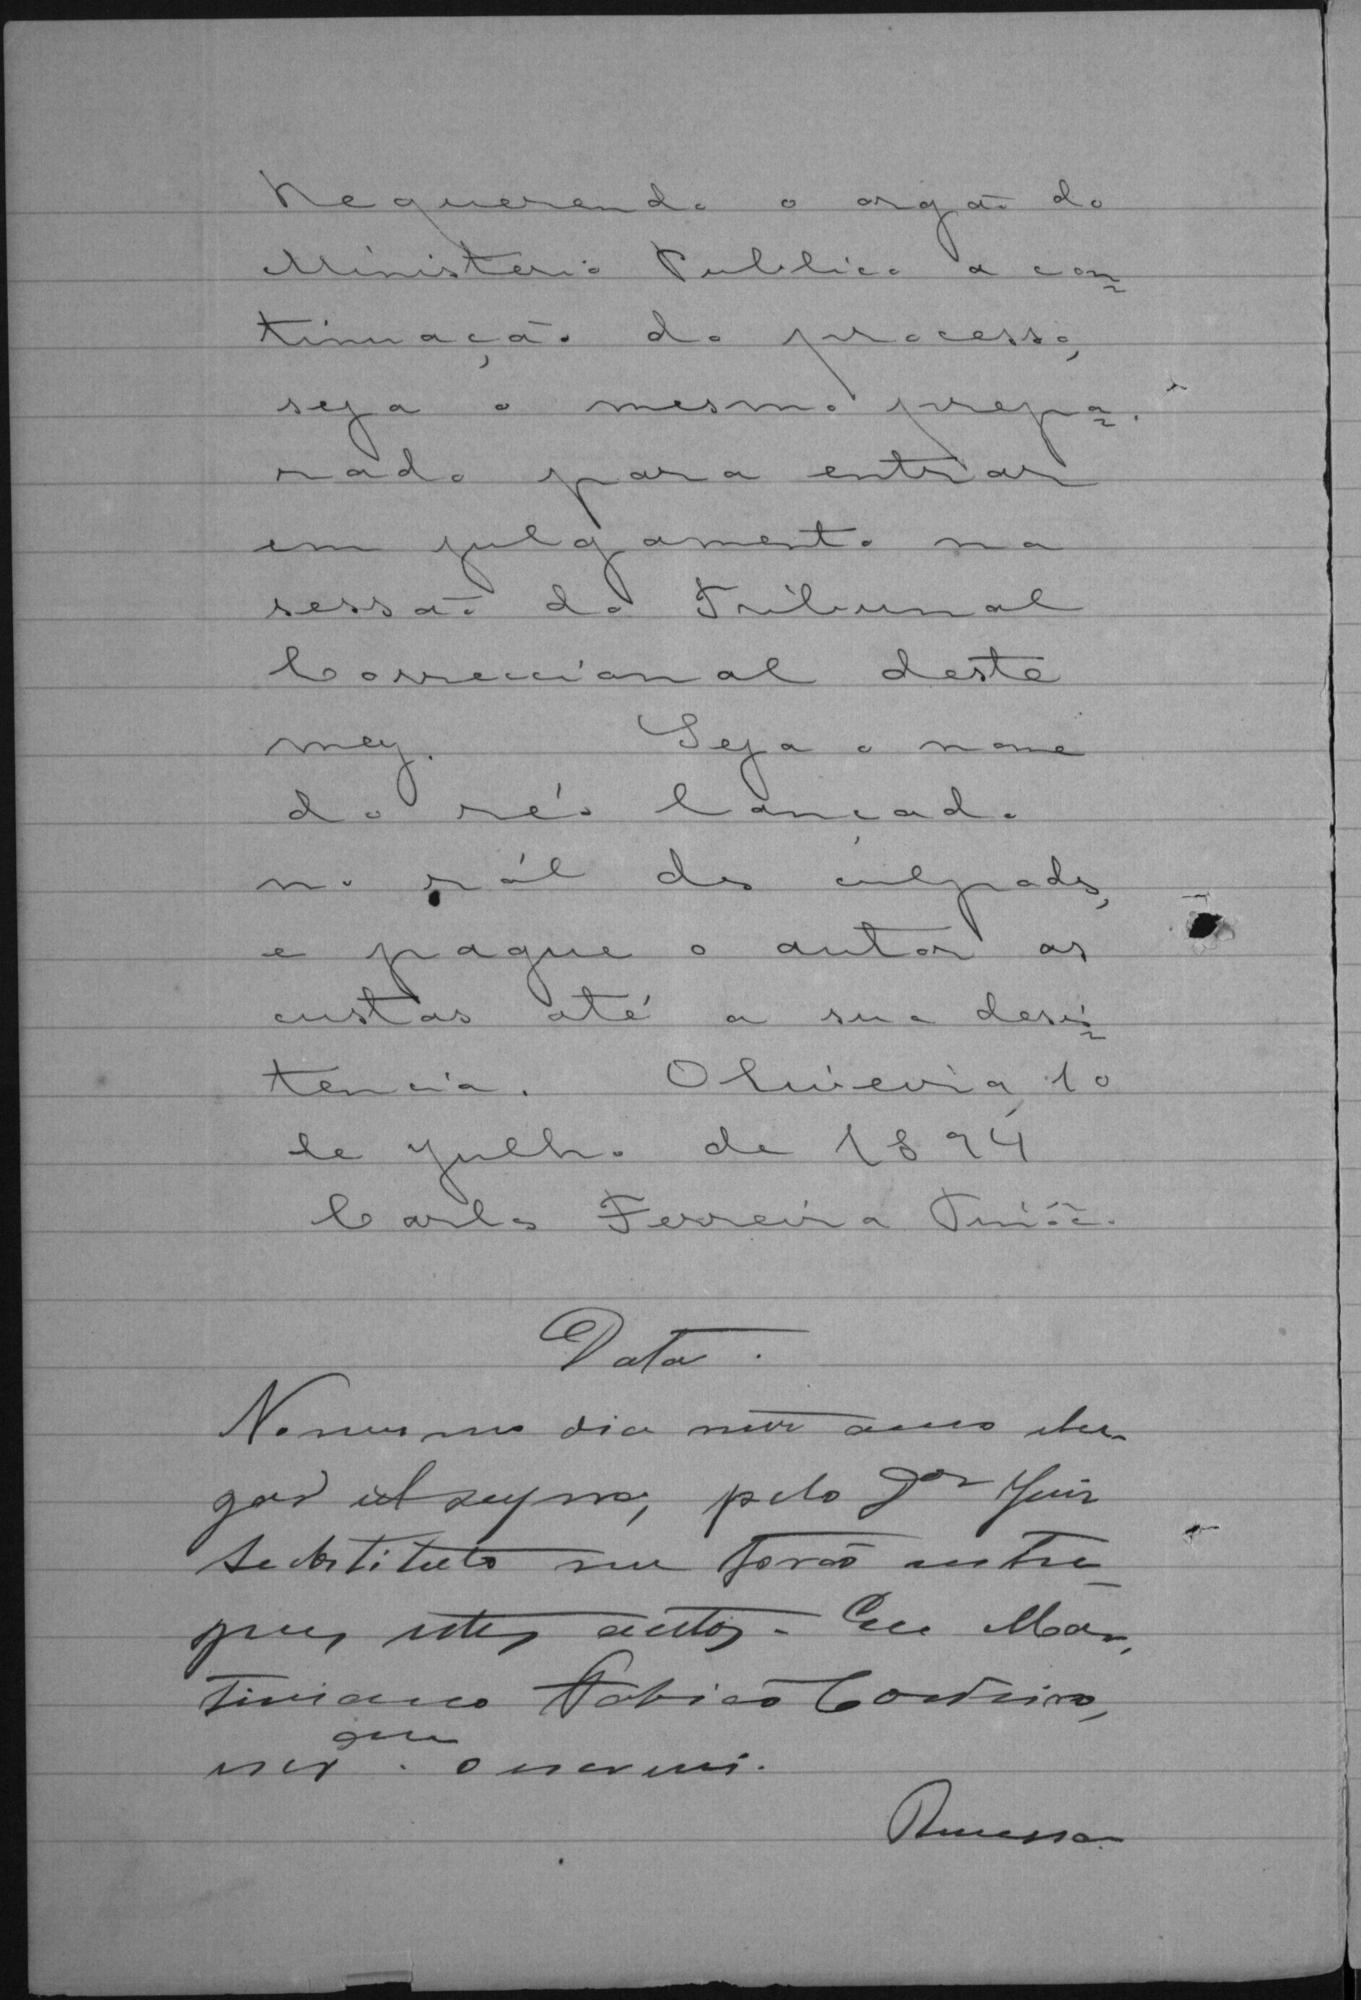 Requerendo o orgão do
Ministerio Publico a con=
tinuação do processo,
seja o mesmo prepa=
rado para entrar
em julgamento na
sessão do Tribunal
Correccional deste
mez. Seja o nome
do réo lançado
no ról dos culpados,
e pague o autor as
custas até a sua desis=
tencia. Oliveira, 10
de julho de 1894
Carlos Ferreira Tinôco.
Data.
No mesmo dia mez anno e lu-
gar supra, pelo Dor Juiz
Substituto me forão entre
gues estes autos. Eu Mar,
tiniano Fabião Cordeiro,
escr. que o escrevi.
Remessa